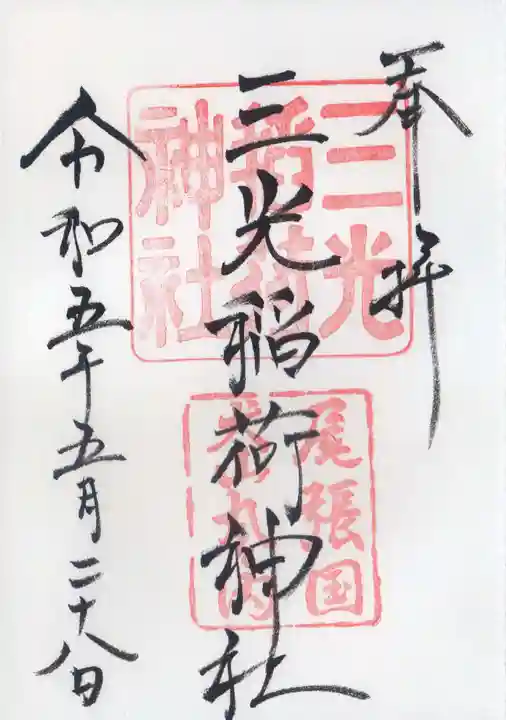 奉拝
三光稲荷神社
令和五年五月二十八日
三光
稲荷
神社
尾張国
丸内